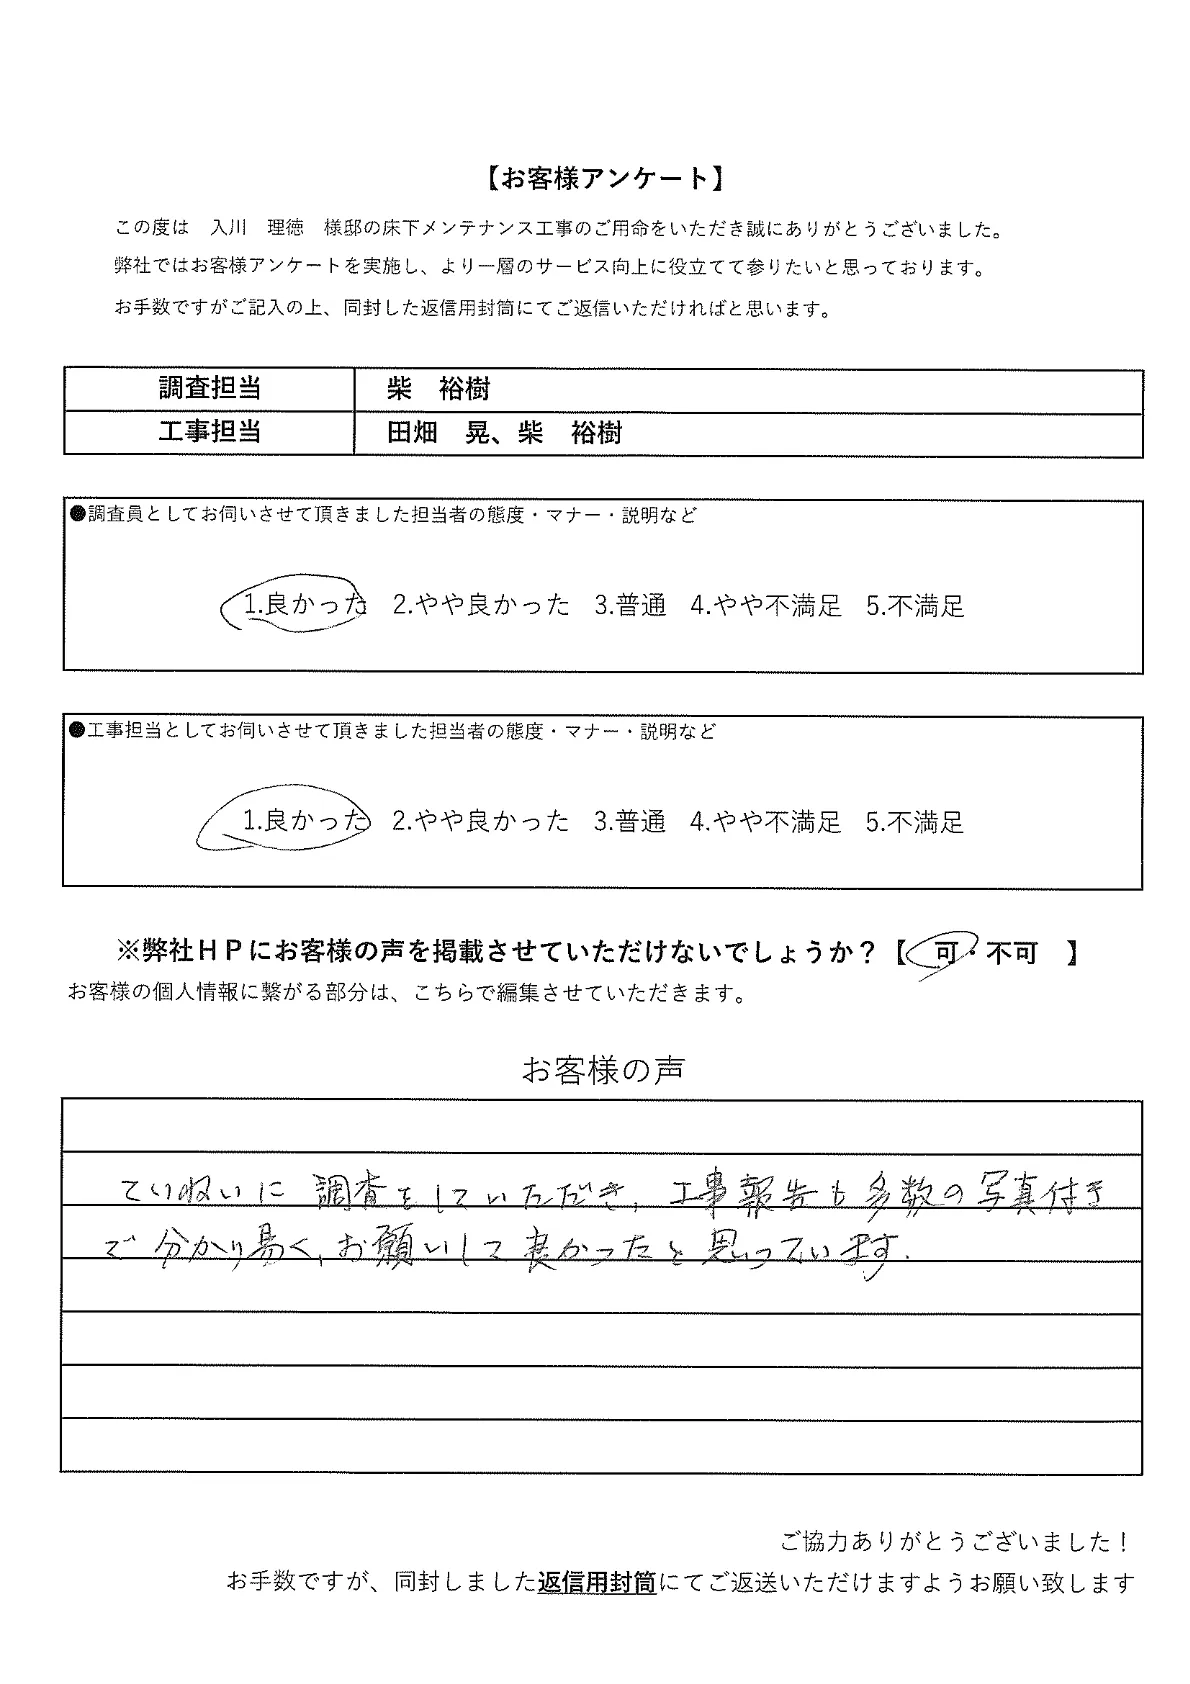 【お客様アンケート】
この度は　入川　理徳　様邸の床下メンテナンス工事のご用命をいただき誠にありがとうございました。
弊社ではお客様アンケートを実施し、より一層のサービス向上に役立てて参りたいと思っております。
お手数ですがご記入の上、同封した返信用封筒にてご返信いただければと思います。
調査担当　柴　裕樹
工事担当　田畑　晃、柴　裕樹
●調査員としてお伺いさせて頂きました担当者の態度・マナー・説明など
1.良かった　2.やや良かった　3.普通　4.やや不満足　5.不満足
●工事担当としてお伺いさせて頂きました担当者の態度・マナー・説明など
1.良かった　2.やや良かった　3.普通　4.やや不満足　5.不満足
※弊社ＨＰにお客様の声を掲載させていただけないでしょうか？【　可・不可　】
お客様の個人情報に繋がる部分は、こちらで編集させていただきます。
お客様の声
ていねいに調査をしていただき、工事報告も多数の写真付き
で分かり易く、お願いして良かったと思っています。
ご協力ありがとうございました！
お手数ですが、同封しました返信用封筒にてご返送いただけますようお願い致します